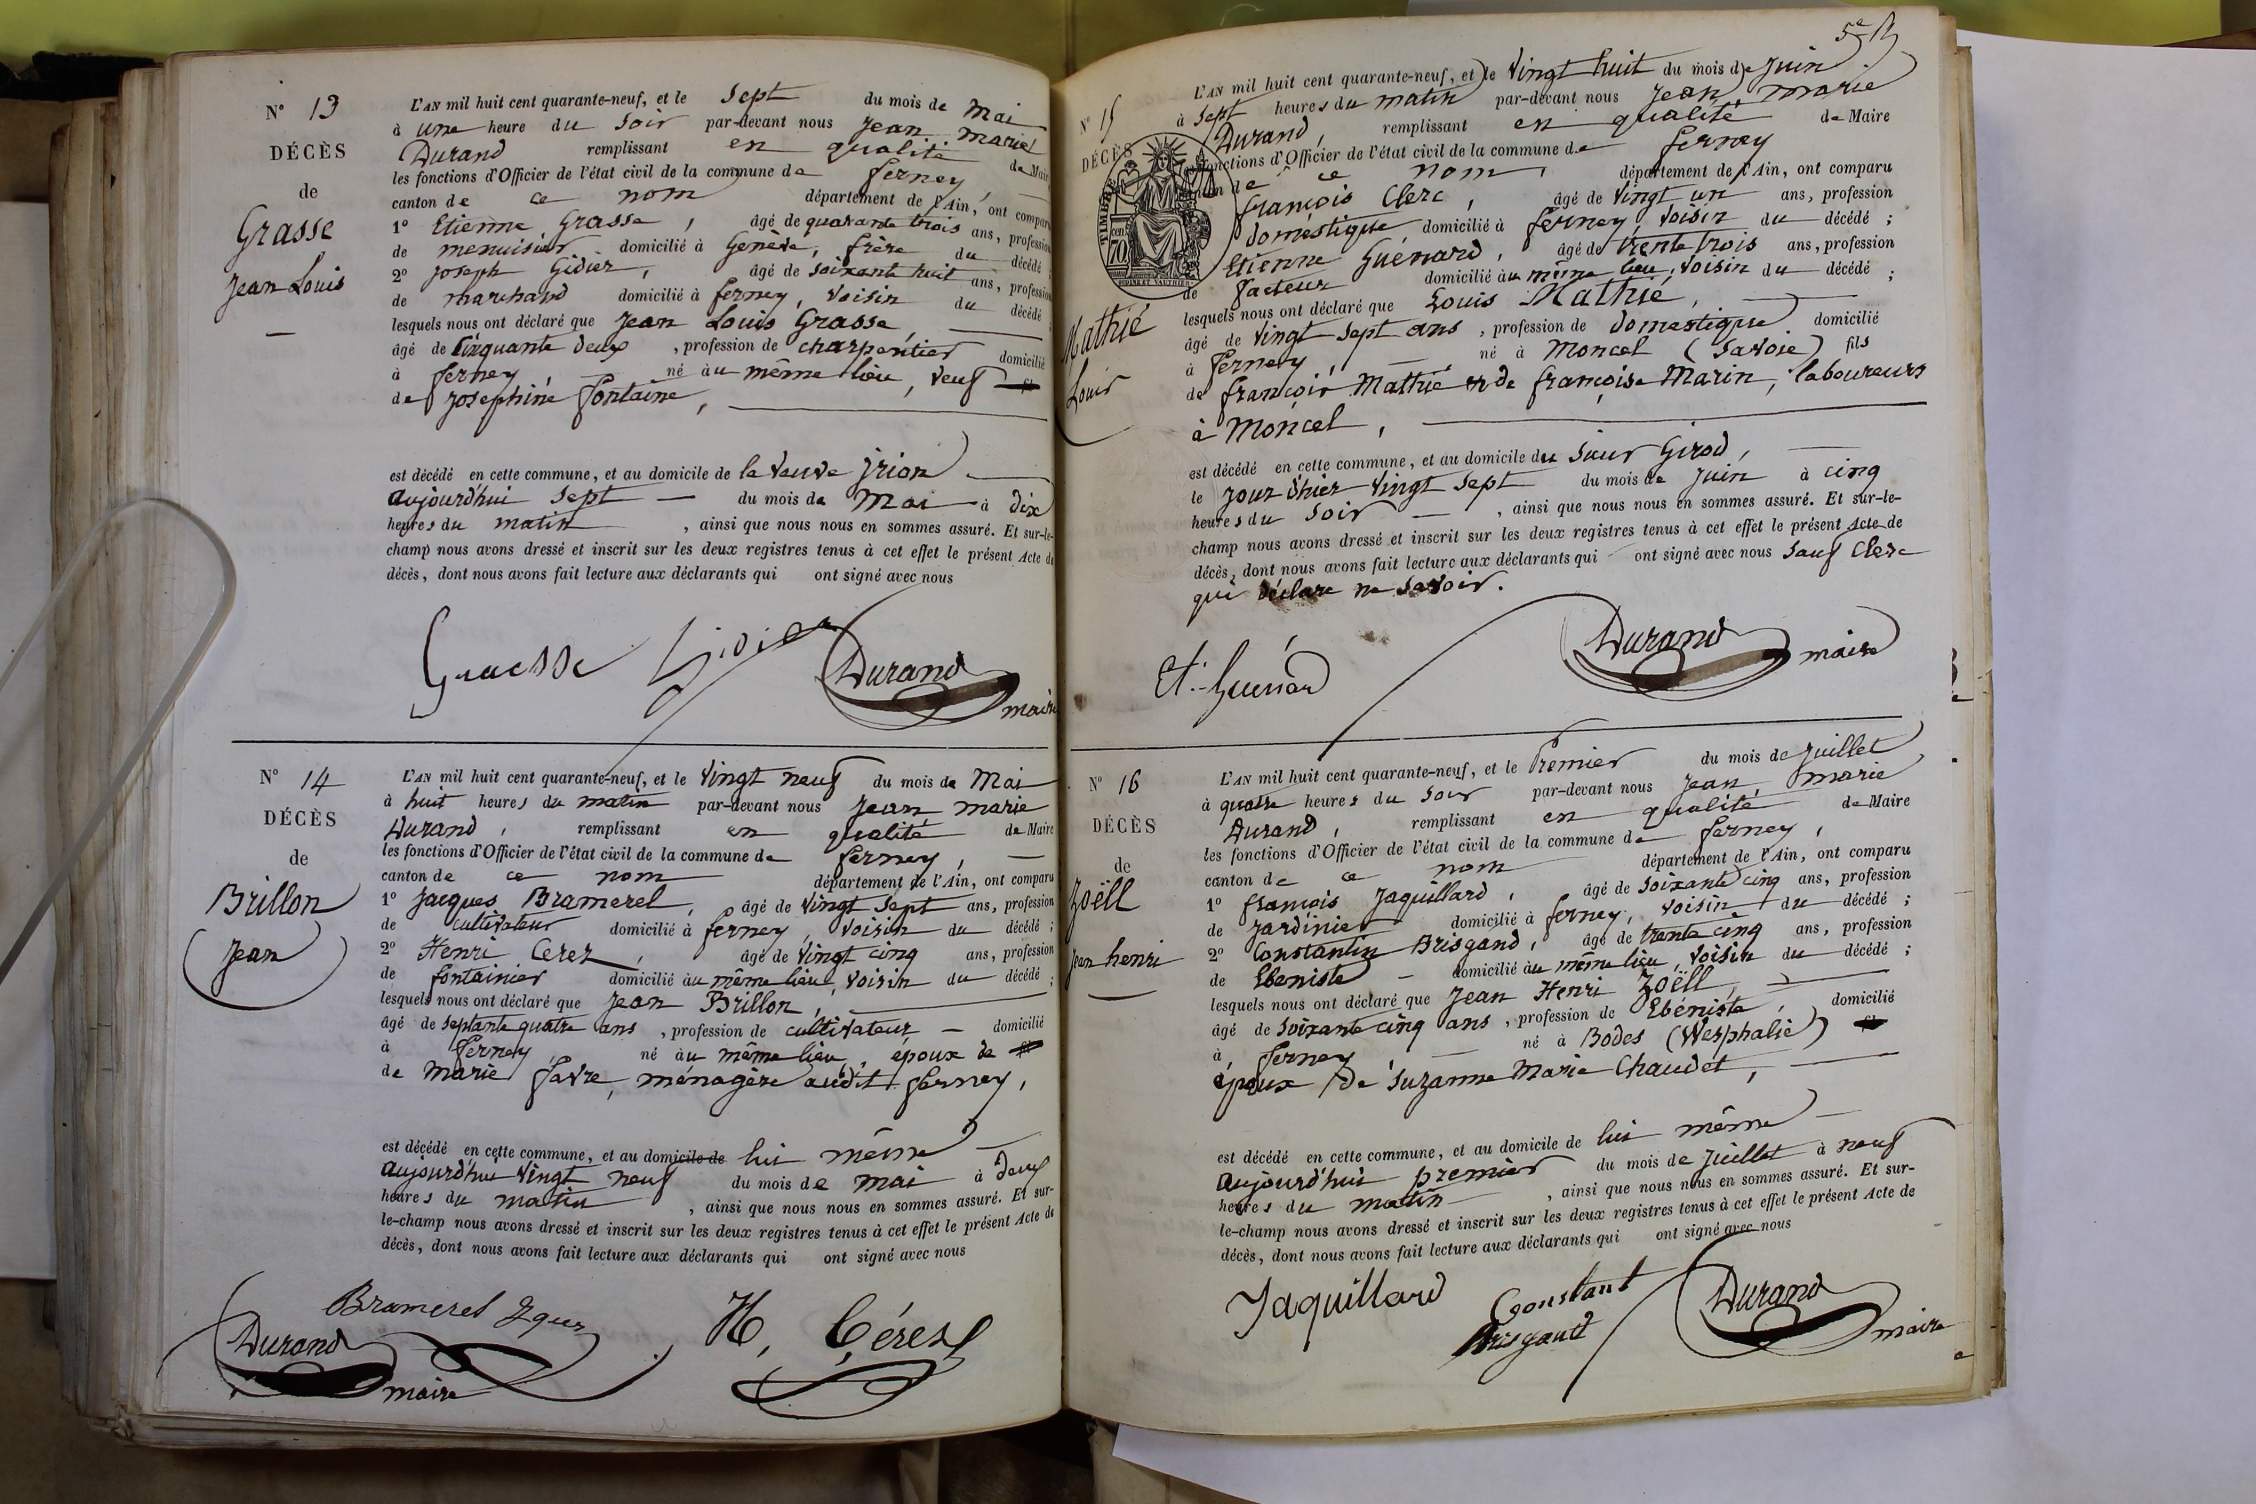 N° 13
DÉCÈS
de
Grasse
Jean Louis
L'AN mil huit cent quarante-neuf, et le sept du mois de Mai
à une heure du soir par-devant nous Jean marie
Durand remplissant en qualité de Maire
les fonctions d'Officier de l'état civil de la commune de ferney,
canton de ce nom département de l'Ain, ont comparu
1° Etienne Grasse, âgé de quarante trois ans, profession
de menuisier domicilié à Genève, frère du décédé
2° Joseph Gidier, âgé de soixante huit ans, profession
de marchand domicilié à ferney, voisin du décédé
lesquels nous ont déclaré que Jean Louis Grasse,
âgé de Cinquante deux, profession de charpentier domicilié
à ferney, né au même lieu, veuf
de Joséphine fontaine,
est décédé en cette commune, et au domicile de la veuve Jrion
aujourd'hui sept du mois de Mai à dix
heures du matin, ainsi que nous nous en sommes assuré. Et sur-le-
champ nous avons dressé et inscrit sur les deux registres tenus à cet effet le présent Acte de
décès, dont nous avons fait lecture aux déclarants qui ont signé avec nous
Gidier Durand
maire
N° 14
DÉCÈS
de
Brillon
Jean
L'AN mil huit cent quarante-neuf, et le vingt neuf du mois de Mai
à huit heures du matin par-devant nous Jean marie
Durand, remplissant en qualité de Maire
les fonctions d'Officier de l'état civil de la commune de ferney,
canton de ce nom département de l'Ain, ont comparu
1° Jacques Bramerel, âgé de vingt sept ans, profession
de cultivateur domicilié à ferney, voisin du décédé ;
2° Henri Cerez, âgé de vingt cinq ans, profession
de fontainier domicilié au même lieu, voisin du décédé ;
lesquels nous ont déclaré que Jean Brillon,
âgé de septante quatre ans, profession de cultivateur domicilié
à ferney, né au même lieu, époux de
de marie favre, ménagère audit ferney,
est décédé en cette commune, et au domicile de lui même
aujourd'hui vingt neuf du mois de mai à deux
heures du matin, ainsi que nous nous en sommes assuré. Et sur-
le-champ nous avons dressé et inscrit sur les deux registres tenus à cet effet le présent Acte de
décès, dont nous avons fait lecture aux déclarants qui ont signé avec nous
Bramerel
H, Cérez
Durand
maire
N° 15
DÉCÈS
Mathié
Louis
TIMBRE
cen
70
L'AN mil huit cent quarante-neuf, et le vingt huit du mois de Juin
à sept heures du matin par-devant nous Jean marie
Durand, remplissant en qualité de Maire
fonctions d'Officier de l'état civil de la commune de ferney
de ce nom, département de l'Ain, ont comparu
françois Clerc, âgé de vingt un ans, profession
domestique domicilié à ferney, voisin du décédé ;
Etienne Guénard, âgé de trente trois ans, profession
de facteur domicilié au même lieu, voisin du décédé ;
lesquels nous ont déclaré que Louis Mathié,
âgé de vingt sept ans, profession de domestique domicilié
à ferney, né à Moncel (Savoie) fils
de françois Mathié et de françoise Marin, laboureurs
à Moncel,
est décédé en cette commune, et au domicile du sieur Girod,
le jour d'hier vingt sept du mois de Juin à cinq
heures du soir, ainsi que nous nous en sommes assuré. Et sur-le-
champ nous avons dressé et inscrit sur les deux registres tenus à cet effet le présent Acte de
décès, dont nous avons fait lecture aux déclarants qui ont signé avec nous sauf Clerc
qui déclare ne savoir.
Et. Guénard
Durand
maire
N° 16
DÉCÈS
de
Zoëll
Jean henri
L'AN mil huit cent quarante-neuf, et le Premier du mois de Juillet
à quatre heures du soir par-devant nous Jean marie
Durand, remplissant en qualité de Maire
les fonctions d'Officier de l'état civil de la commune de ferney,
canton de ce nom département de l'Ain, ont comparu
1° françois Jaquillard, âgé de soixante cinq ans, profession
de Jardinier domicilié à ferney, voisin du décédé ;
2° Constantin Brisgand, âgé de trente cinq ans, profession
de Ebéniste domicilié au même lieu, voisin du décédé ;
lesquels nous ont déclaré que Jean Henri Zoëll,
âgé de soixante cinq ans, profession de Ebéniste, domicilié
à ferney né à Bodes (Wesphalie)
époux de Suzanne Marie Chaudet,
est décédé en cette commune, et au domicile de lui même
aujourd'hui premier du mois de Juillet à neuf
heures du matin, ainsi que nous nous en sommes assuré. Et sur-
le-champ nous avons dressé et inscrit sur les deux registres tenus à cet effet le présent Acte de
décès, dont nous avons fait lecture aux déclarants qui ont signé avec nous
Jaquillard
Constant
Brisgand
Durand
maire